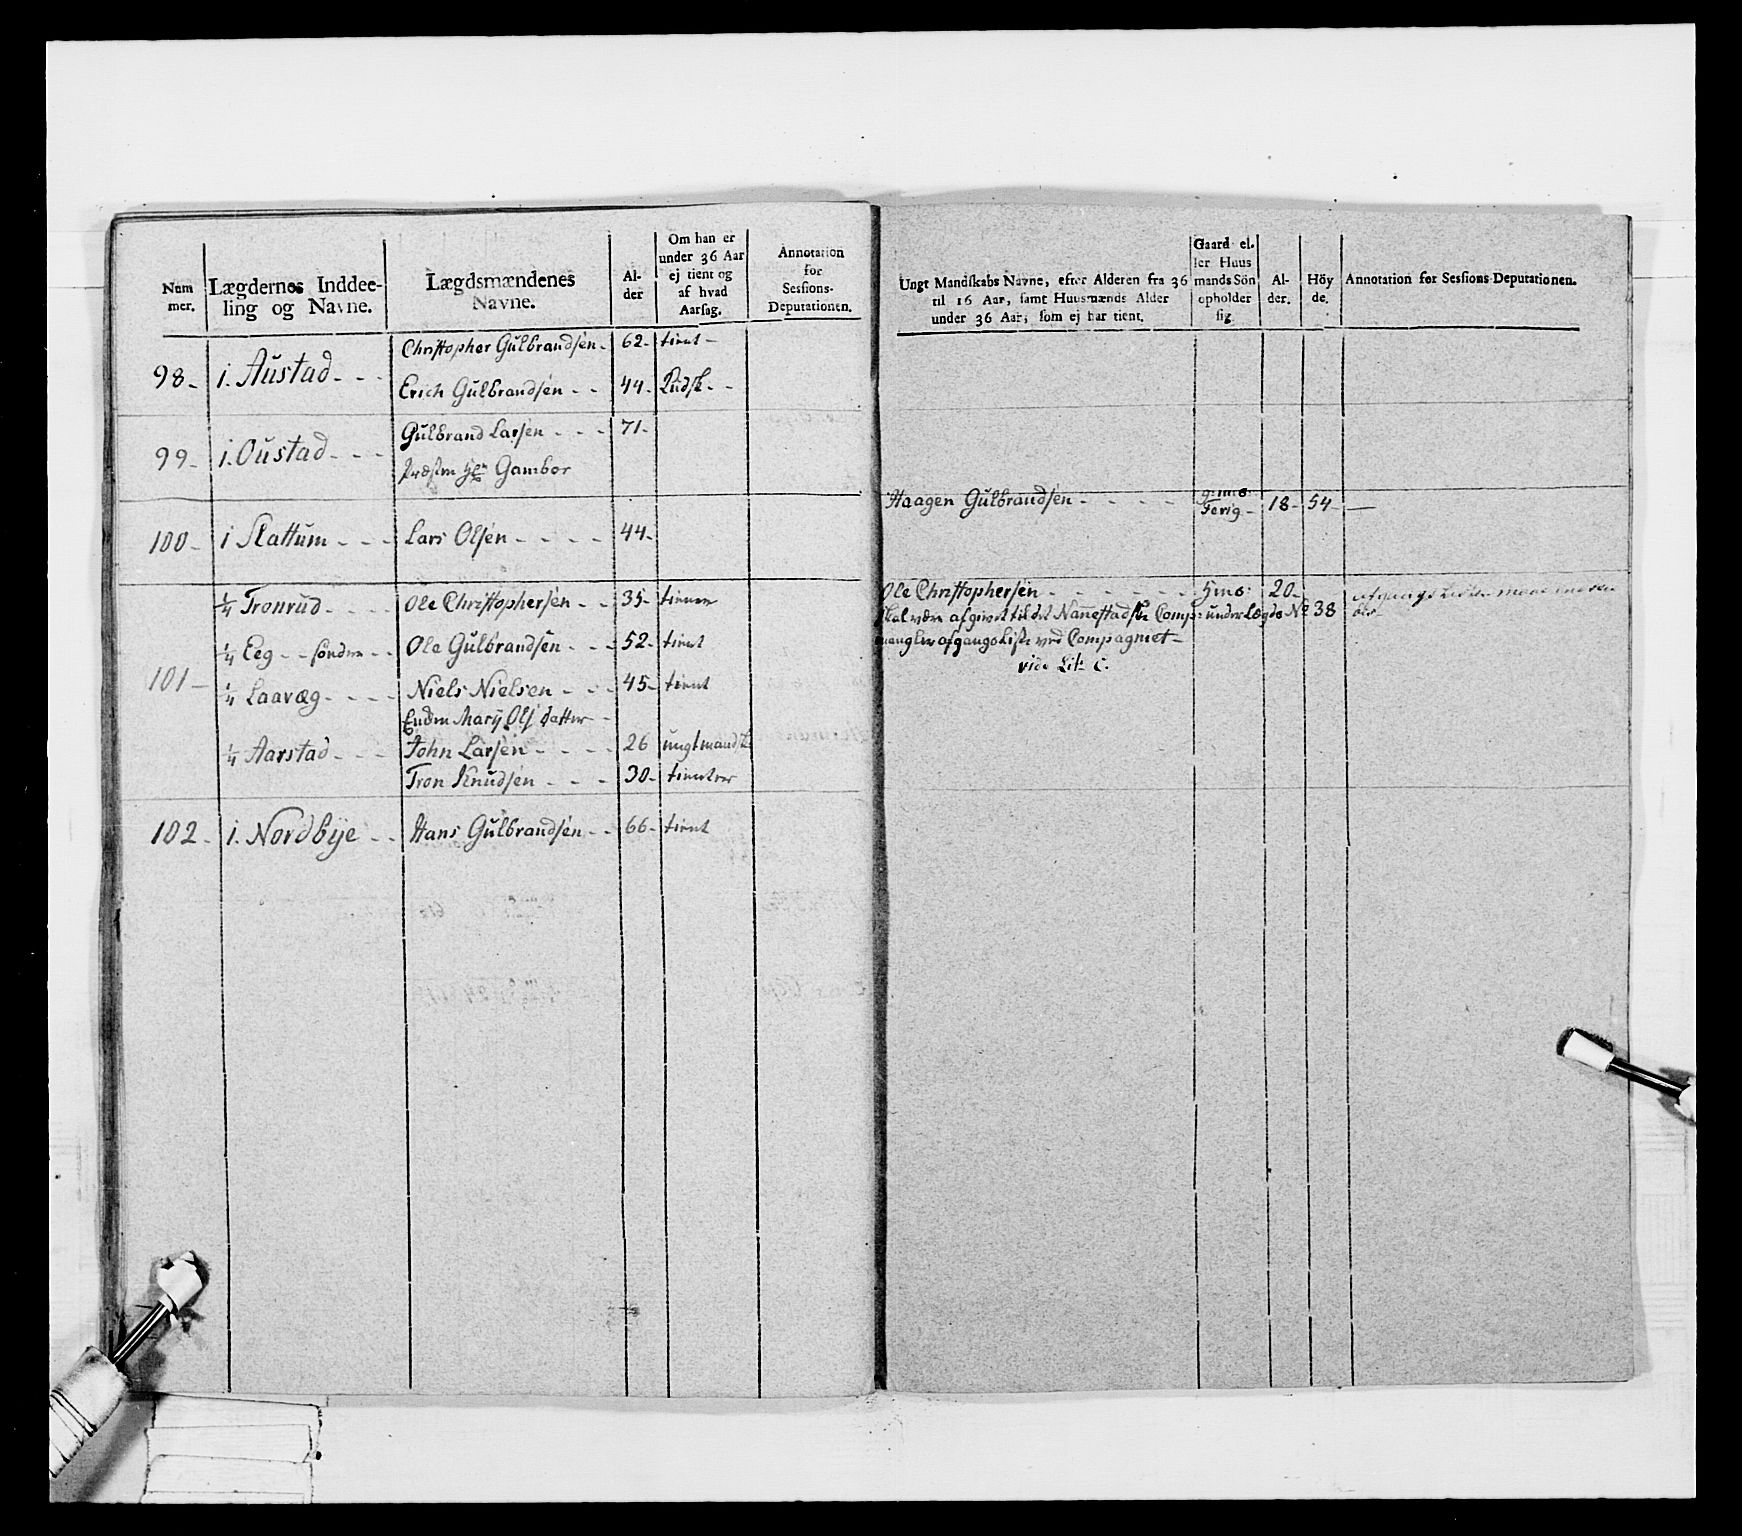 Num
mer.
Lægdernes Inddee-
ling og Navne.
Lægdsmændenes
Navne.
Al-
der
Om han er
under 36 Aar
ej tient og
af hvad
Aarsag.
Annotation
for
Sessions-
Deputationen.
98 - 1. Austad - - - Christopher Gulbrandsen - 62 - tient -
Erich Gulbrandsen - - 44 - Lüdsk - -
99 - 1. Oustad - - - Gulbrand Larsen - - - 71 -
Gambor
100 - 1 Slattum - - - Lars Olsen - - - - 44 -
101 -
1/4 Tronrud - - - - Ole Christophersen - - 35 - tiener
1/4 Eeg - - söndre - - Ole Gulbrandsen - - - 52 - tient
1/4 Laavæg - - - - Niels Nielsen - - - 45 - tient
Mary Ols datter - -
1/4 Aarstad - - - John Larsen - - - - 26 ungt mandsk
Tron Knudsen - - - 30 - tienner
102 - 1. Nordbye - - Hans Gulbrandsen - - 66 - tient
Ungt Mandskabs Navne, efter Alderen fra 36
til 16 Aar, samt Huusmænds Alder
under 36 Aar, som ej har tient.
Gaard el.
ler Huus
mands Sön
opholder
sig
Al-
der.
Höy
de.
Annotation for Sessions-Deputationen.
Haagen Gulbrandsen - - - - - 18 - 54 -
Ole Christophersen - - - - - - - hms: 20 -
skal være afgivet til det Nannestadske Comp: under Lægds No 38
mangler afgangs Liste ved Compagniet -
vide Lit: C.